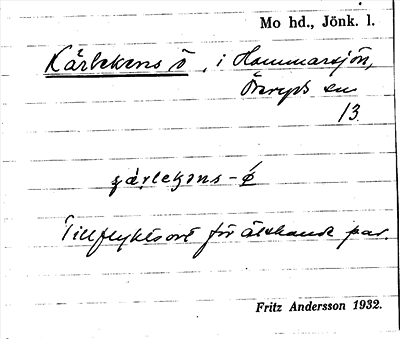 Mo hd., Jönk. l.
Kärlekens ö, i Hammarsjön,
Öreryds sn
13
çä́rlekəns-ǿ
Tillflyktsort för älskande par.
Fritz Andersson 1932.